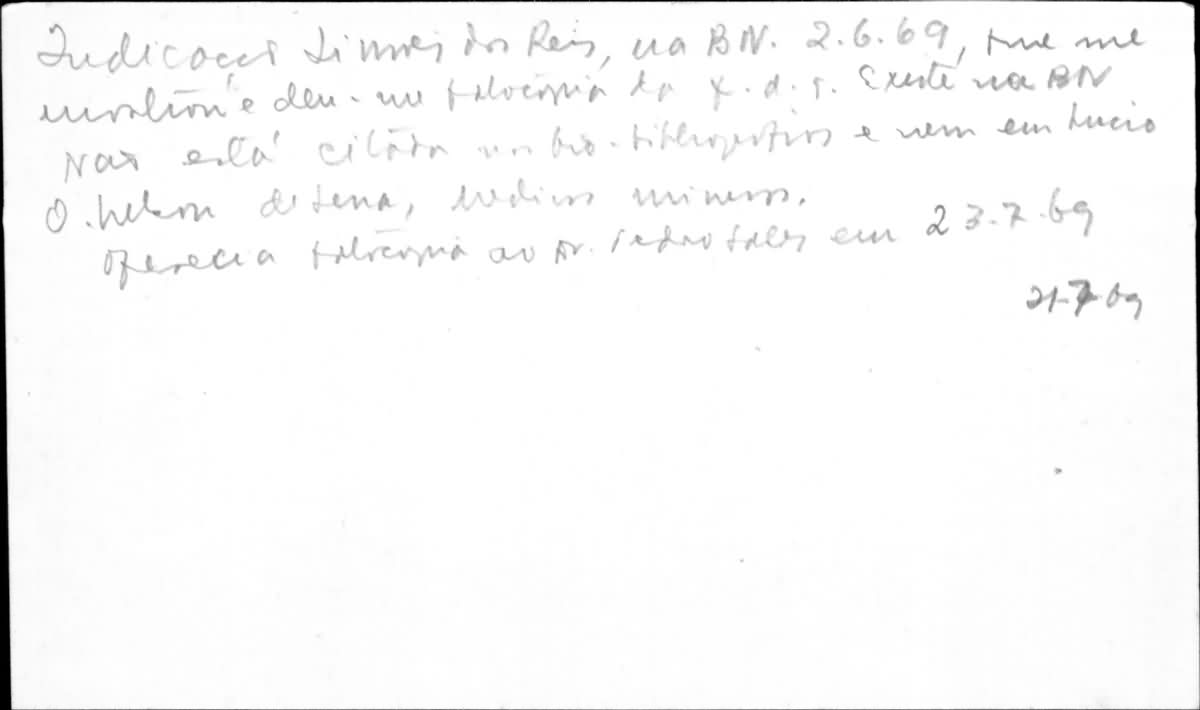 Indicação Simões dos Reis, na BN. 2.6.69, que me
mostrou e deu-me fotocópia da f. d. r. Existe na BN
Não está citada nos bio-bibliográficos e nem em Lucio
O. Nelson de Sena, medicos mineiros.
Ofereci a fotocópia ao Dr. Pedro Sales em 23.7.69
21-7-69